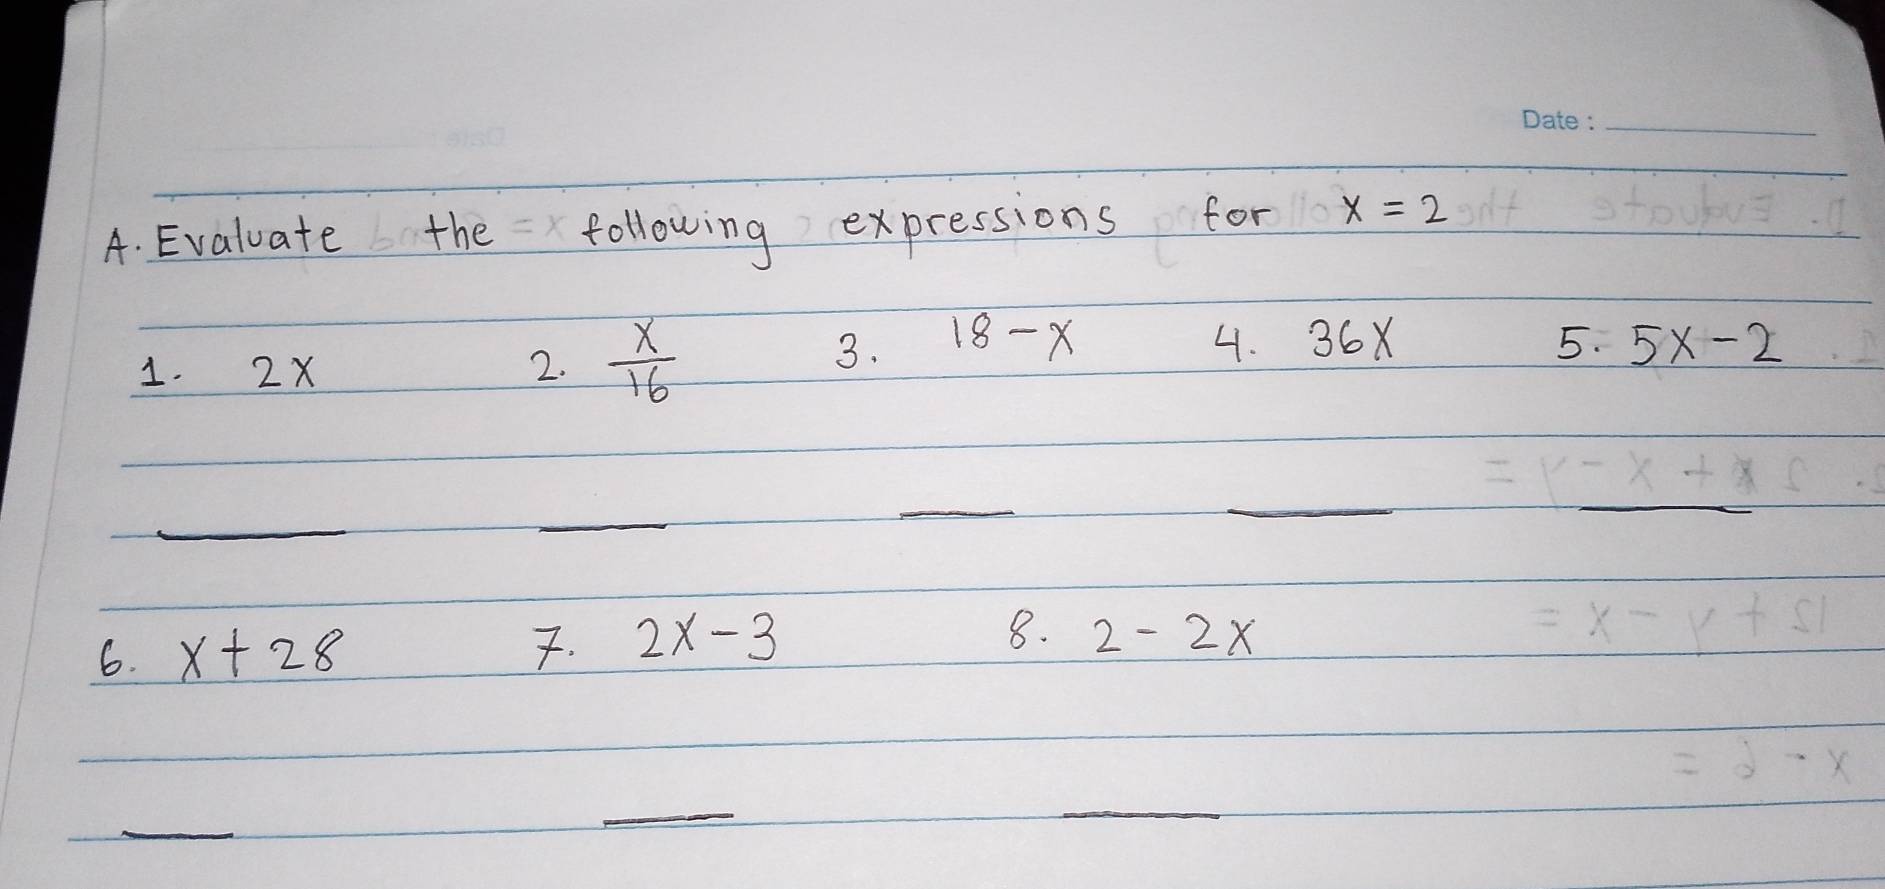 Date :
A. Evaluate the following expressions for x = 2
1. 2x 2. x/16 3. 18 - x 4. 36x 5. 5x - 2
6. x + 28 7. 2x - 3 8. 2 - 2x